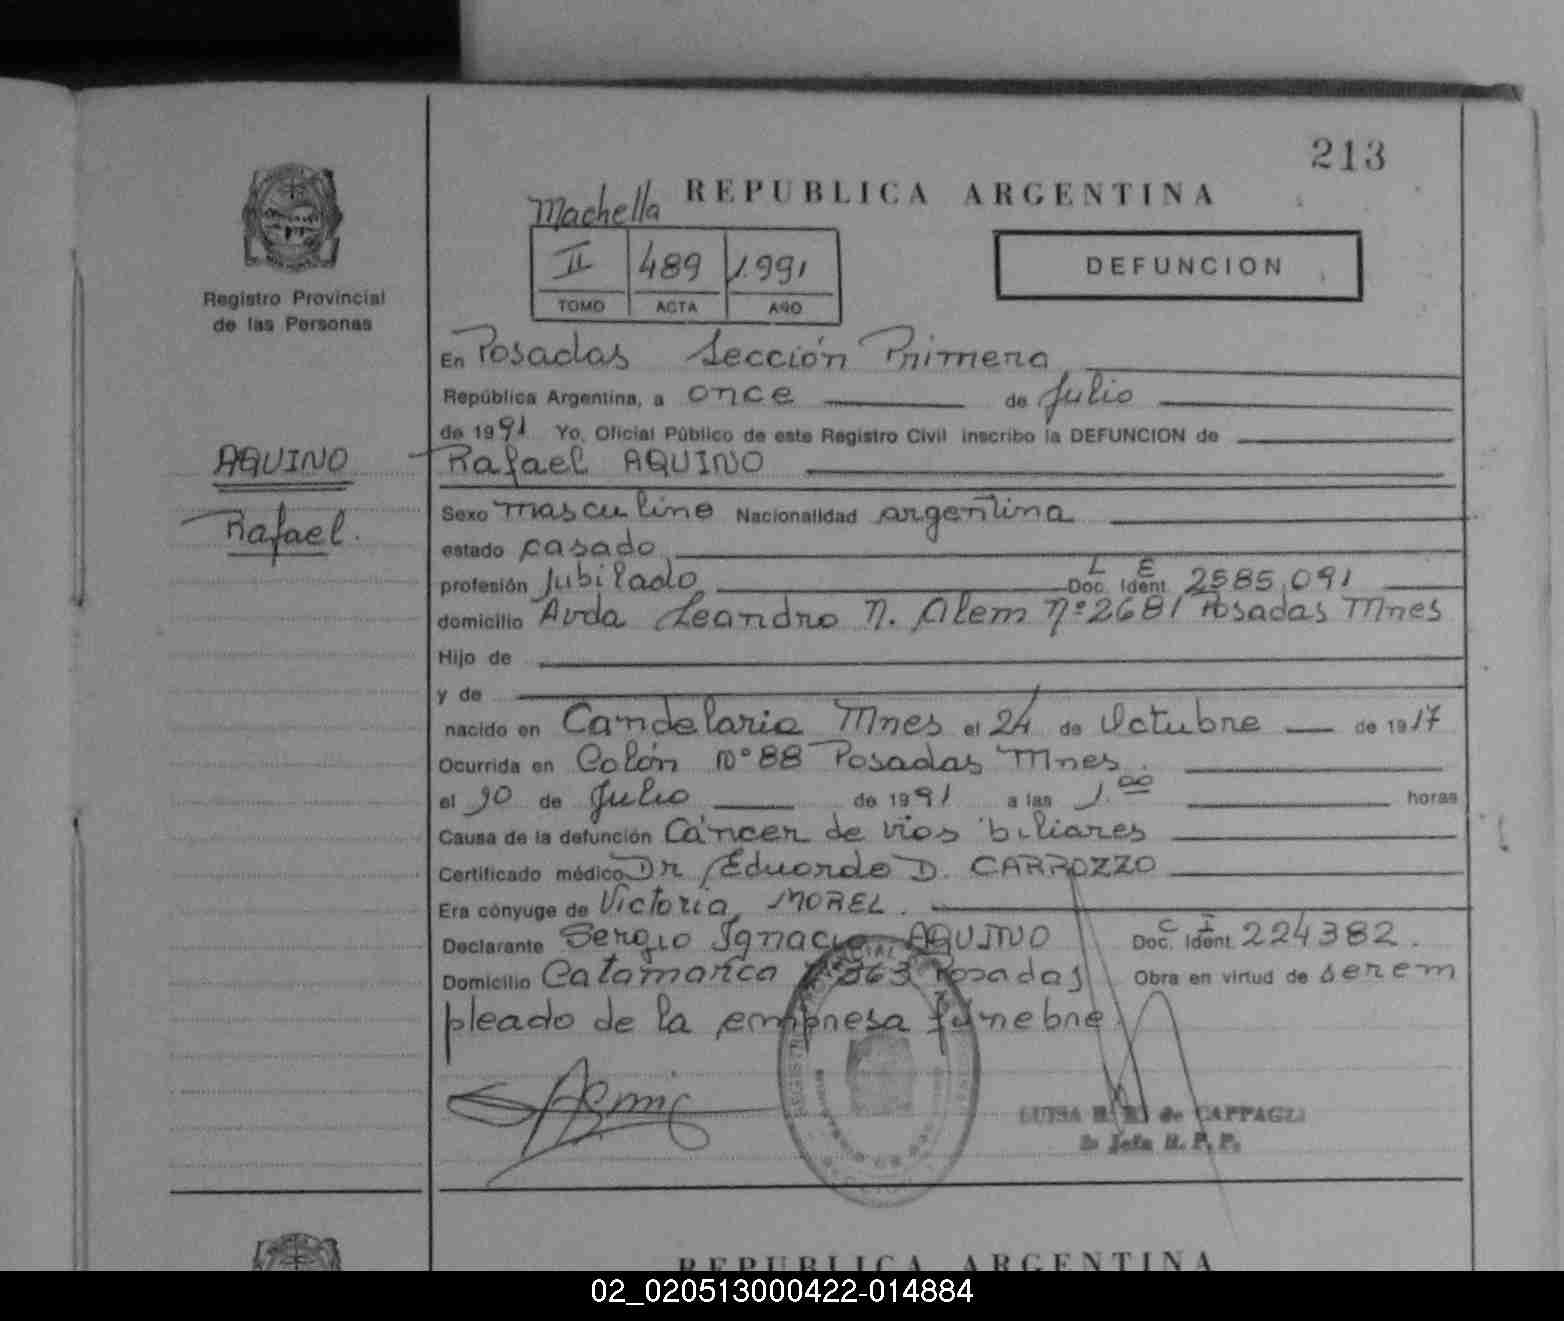 213
REPUBLICA ARGENTINA
Machella
II 489 1.991
TOMO ACTA AÑO
DEFUNCION
Registro Provincial
de las Personas
En Posadas Sección Primera
República Argentina, a once de Julio
de 1991 Yo, Oficial Público de este Registro Civil inscribo la DEFUNCION de
AQUINO
Rafael AQUINO
Rafael.
Sexo masculino Nacionalidad argentina
estado casado
profesión Jubilado Doc. Ident. L E 2585.091
domicilio Avda Leandro N. Alem Nº 2681 Posadas Mnes
Hijo de
y de
nacido en Candelaria Mnes el 24 de Octubre de 1917
Ocurrida en Colón Nº 88 Posadas Mnes.
el 10 de Julio de 1991 a las 1.00 horas
Causa de la defunción Cáncer de vias biliares
Certificado médico Dr Eduardo D. CARROZZO
Era cónyuge de Victoria MOREL.
Declarante Sergio Ignacio AQUINO Doc. Ident. C I 224382.
Domicilio Catamarca 363 Posadas Obra en virtud de ser em
pleado de la empresa fúnebre
LUISA de CAPPAGLI
Jefa R. P. P.
REPUBLICA ARGENTINA
02_020513000422-014884